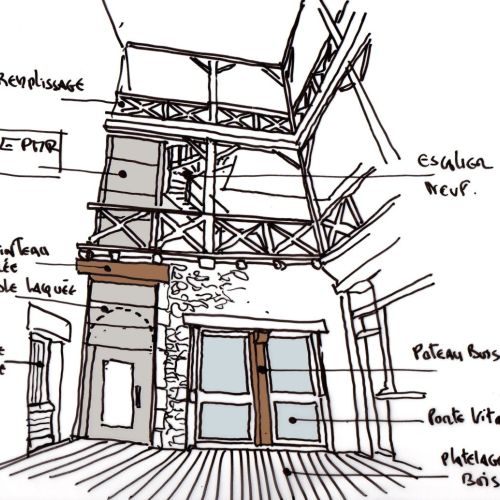 REMPLISSAGE
E PMR
ESCALIER
NEUF.
INTEAU
ÉE
OLE LAQUÉE
POTEAU BOIS
PORTE VIT
PLATELAGE
BOIS